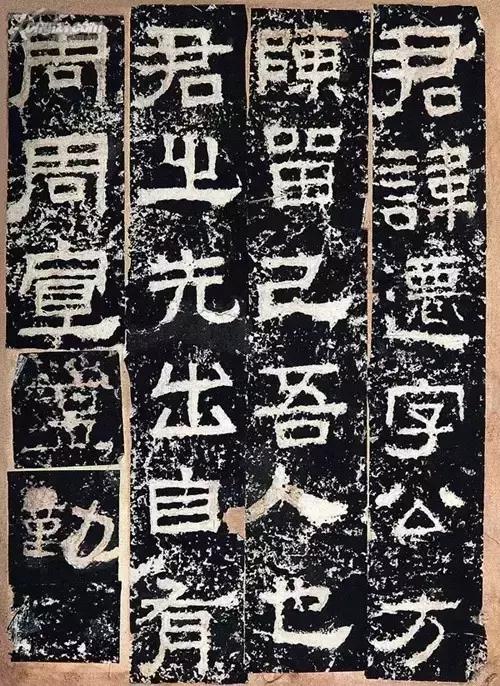 君諱遷字公方
陳留己吾人也
君之先出自有
周周宣